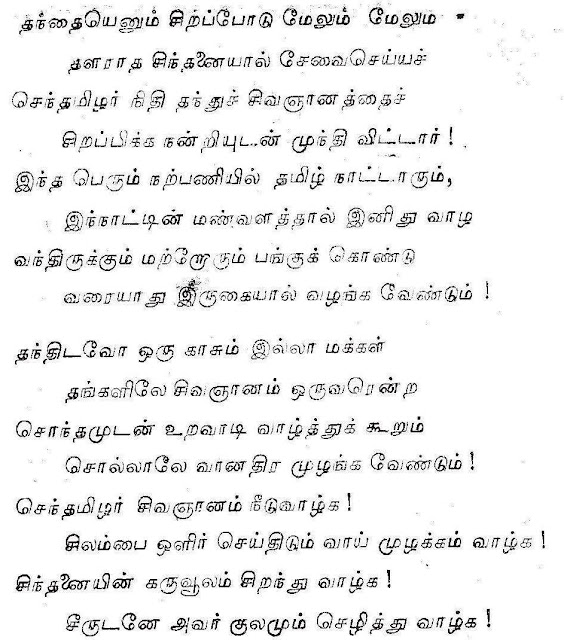 தந்தையெனும் சிறப்போடு மேலும் மேலும்
தளராத சிந்தனையால் சேவைசெய்யச்
செந்தமிழர் நிதி தந்துச் சிவஞானத்தைச்
சிறப்பிக்க நன்றியுடன் முந்தி விட்டார் !
இந்த பெரும் நற்பணியில் தமிழ் நாட்டாரும்,
இந்நாட்டின் மண்வளத்தால் இனிது வாழ
வந்திருக்கும் மற்றோரும் பங்குக் கொண்டு
வரையாது இருகையால் வழங்க வேண்டும் !
தந்திடவோ ஒரு காசும் இல்லா மக்கள்
தங்களிலே சிவஞானம் ஒருவரென்ற
சொந்தமுடன் உறவாடி வாழ்த்துக் கூறும்
சொல்லாலே வானதிர முழங்க வேண்டும் !
செந்தமிழர் சிவஞானம் நீடுவாழ்க !
சிலம்பை ஒளிர் செய்திடும் வாய் முழக்கம் வாழ்க !
சிந்தனையின் கருவூலம் சிறந்து வாழ்க !
சீருடனே அவர் குலமும் செழித்து வாழ்க !